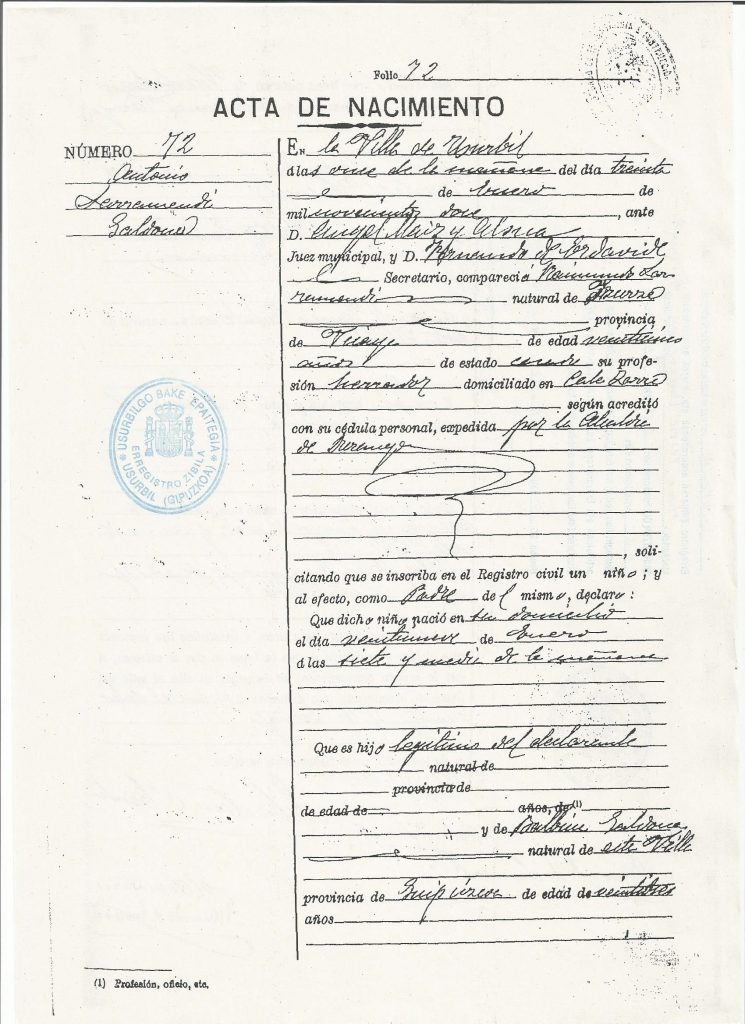 Folio 72
ACTA DE NACIMIENTO
NÚMERO 72
Antonio
Larramendi
Galdona
En la Villa de Usurbil
á las once de la mañana del día treinta
de Enero de
mil novecientos doce, ante
D. Angel
Juez municipal, y D. Fernando de
Secretario, compareció Raimundo Lar
ramendi natural de
provincia
de de edad veinticinco
años de estado casado su profe-
sión herrador domiciliado en Cale Zarra
según acreditó
con su cédula personal, expedida por la Alcaldía
de Durango
, soli-
citando que se inscriba en el Registro civil un niño; y
al efecto, como Padre del mismo, declaro:
Que dicho niño nació en su domicilio
el día veintinueve de Enero
á las siete y media de la mañana
Que es hijo legítimo del declarante
natural de
provincia de
de edad de años, de (1)
y de Galdona
natural de esta Villa
provincia de Guipúzcoa de edad de veintitres
años
(1) Profesión, oficio, etc.
USURBILGO BAKE EPAITEGIA
ERREGISTRO ZIBILA
USURBIL (GIPUZKOA)